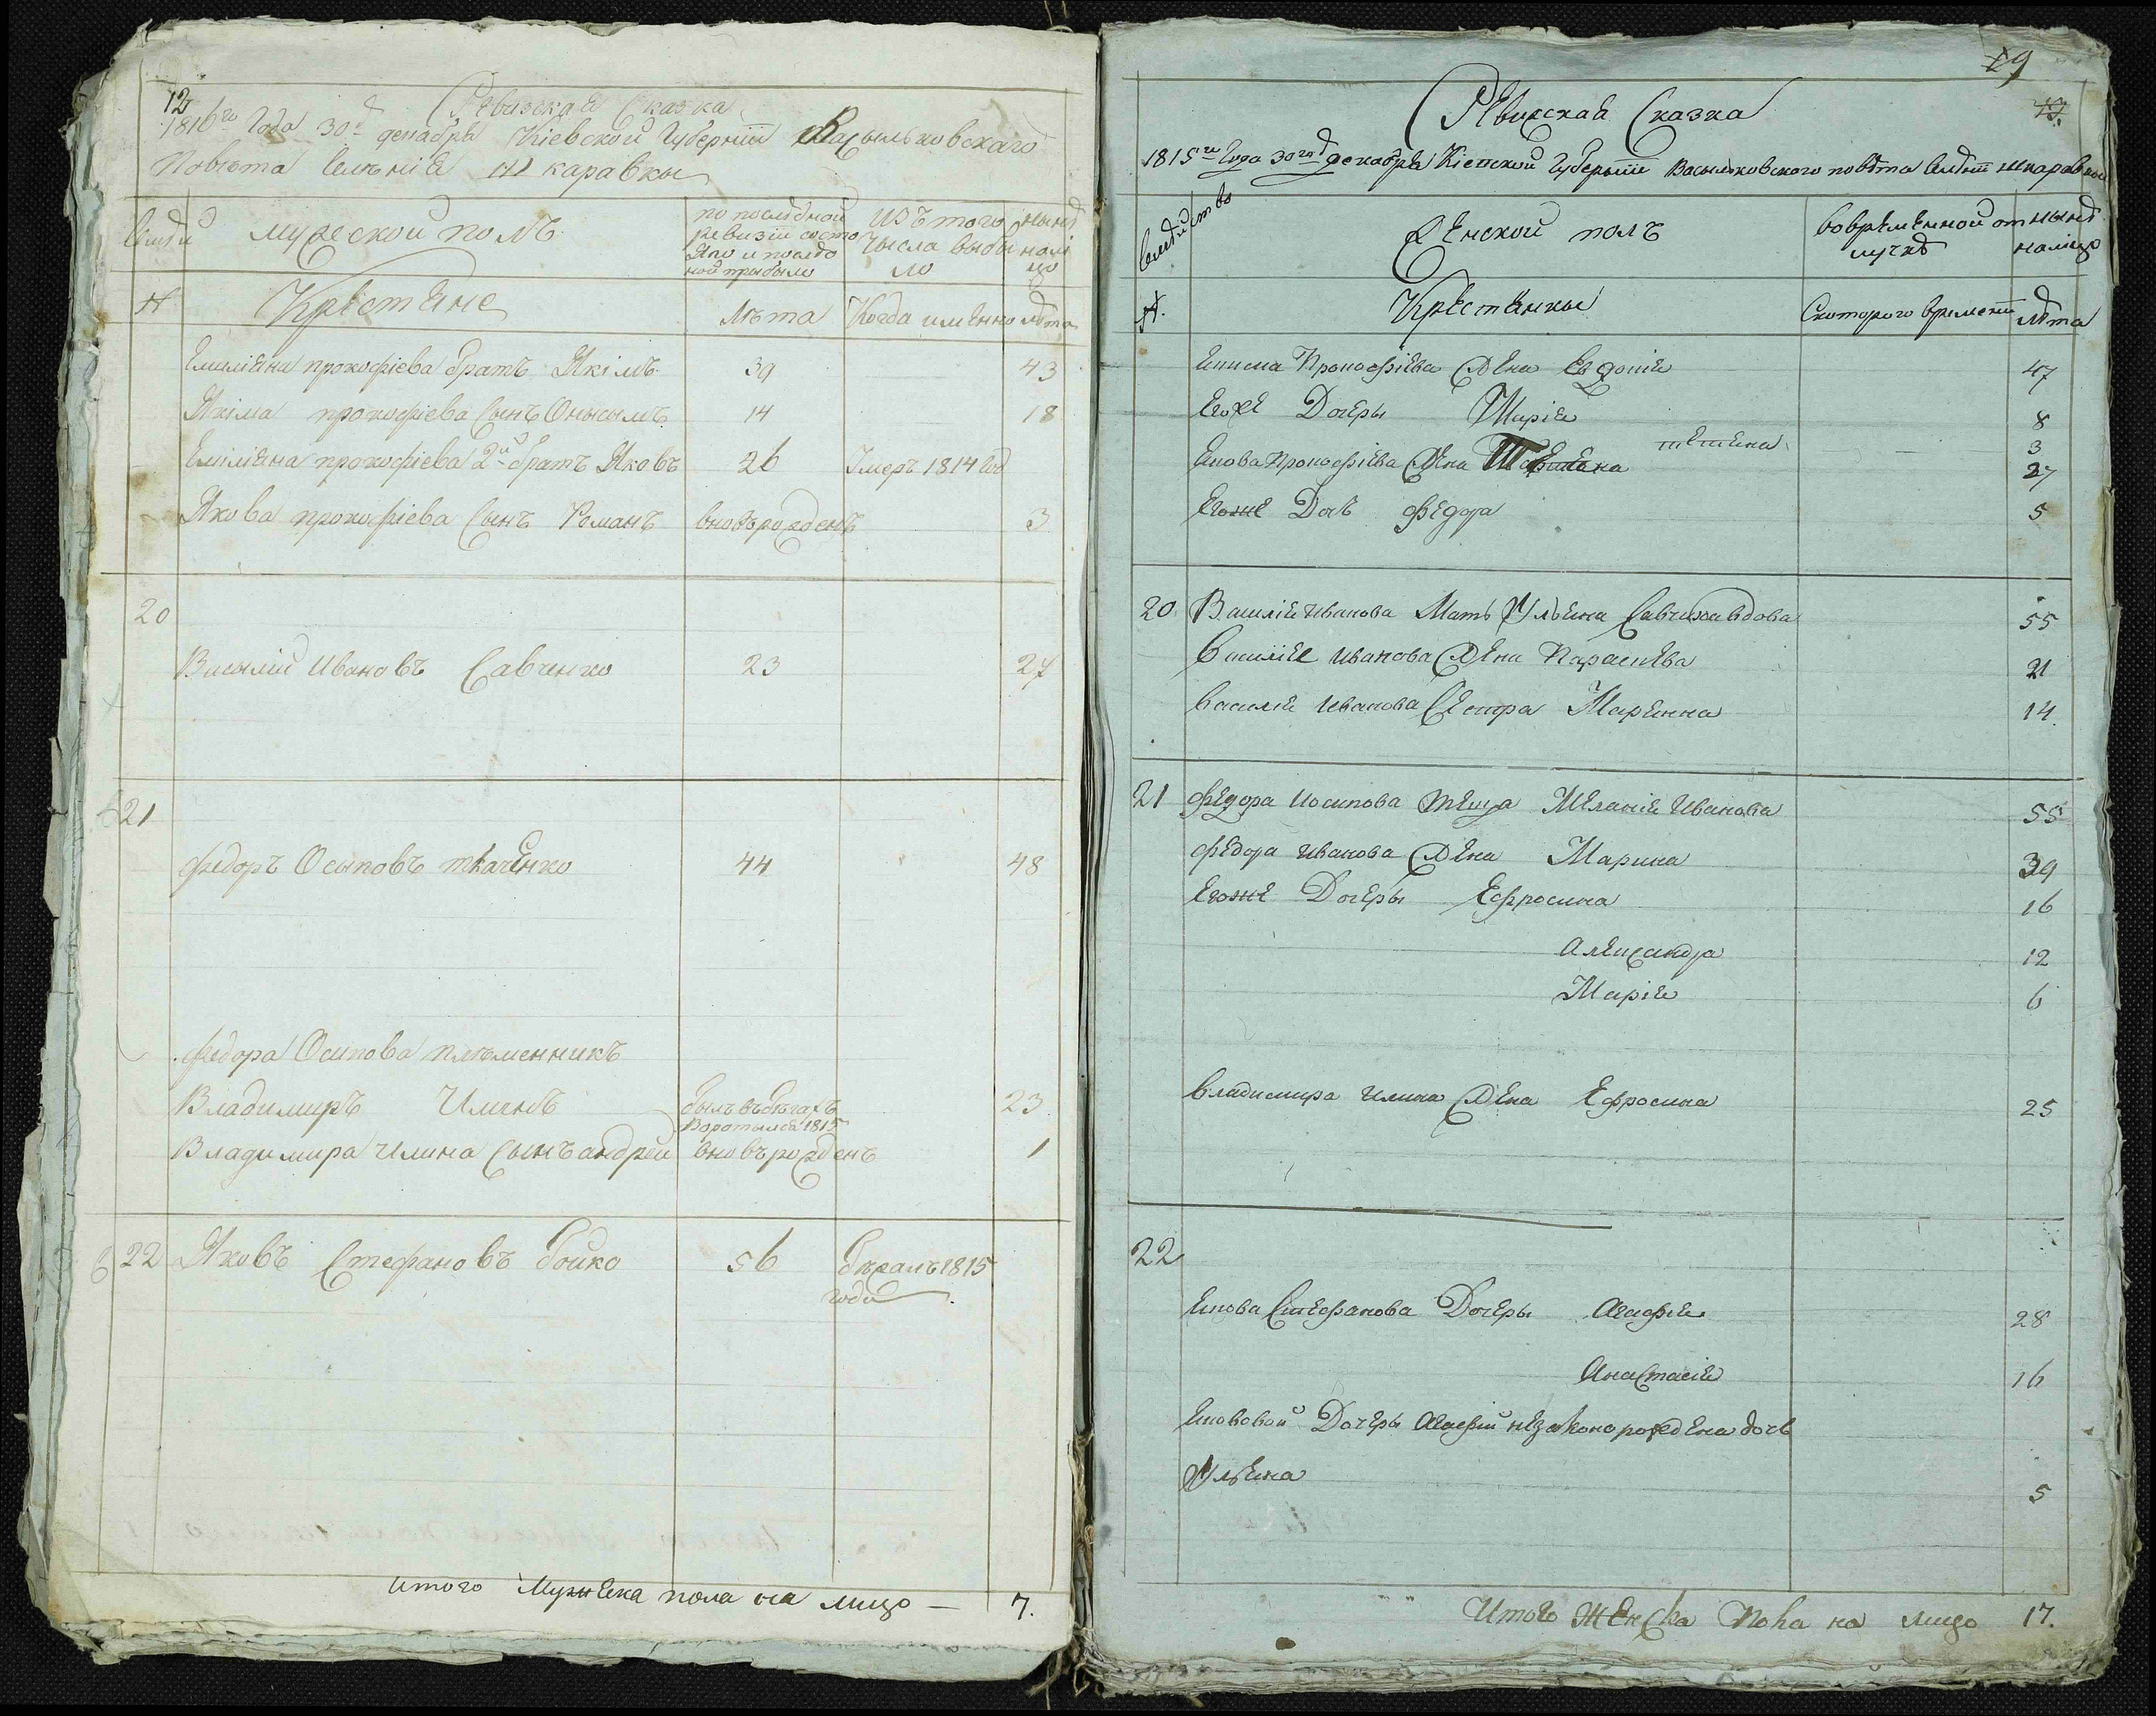 12
Ревизская Сказка
1816го Года 30д декабря Кіевской Губерніи Васыльковскаго
Повѣта Селѣнія Шкаравкы
мужеской полъ
по последной ревизіи состояло и после оной прибыло
Изъ того Числа выбыло
ныне налицо
№
Крестяне
Лѣта
Когда именно
лѣта
Емиліяна прокофіева братъ Якімъ 39 43
Якіма прокофіева Сынъ Онысымъ 14 18
Еміліяна прокофіева 2й братъ Яковъ 26 Умеръ 1814 год
Якова прокофіева Сынъ Романъ вновърожденъ 3
20
Васылій Ивановъ Савченко 23 27
21
Федоръ Осыповъ ткаченко 44 48
Федора Осипова племенникъ
Владимиръ Илинъ былъ въ бѣгахъ 23
Воротылся 1815
Владимира Илина Сынъ андрей вновърожденъ 1
22 Яковъ Стефановъ бойко 56 бежалъ 1815
года
итого Мужеска пола на лицо — 7.
19
13.
Ревизская Сказка
1815го Года 30го декабря Кіевской Губерніи Васыльковского повѣта Селѣнія шкаравкы
Семейство
Женской полъ
Во временной отлучкѣ
ныне налицо
№.
Крестянкы
Скоторого времени
лѣта
Якима Прокофіева Жена Евдокія 47
Егоже Дочеры Марія 8
тетяна 3
Якова Прокофіева Жена Татіяна 27
Егоже Дочь Федора 5
20 Василія Иванова Мать Ульяна Савчиха вдова 55
Василія Иванова Жена Параскева 21
Василія Иванова Сестра Маріянна 14.
21 Федора Иосипова теща Меланія Иванова 55
Федора Иванова Жена Марина 39
Егоже Дочеры Ефросина 16
Александра 12
Марія 6
Владимира Илина Жена Ефросина 25
22
Якова Стефанова Дочеры Агафія 28
Анастасія 16
Яковвой Дочеры Агафіи незаконорожденa дочь
Ульяна 5
Итого Женска Пола на лицо 17.